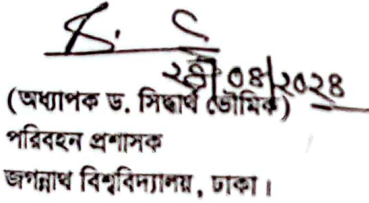 ২৪/০৪/২০২৪
(অধ্যাপক ড. সিদ্ধার্থ ভৌমিক)
পরিবহন প্রশাসক
জগন্নাথ বিশ্ববিদ্যালয়, ঢাকা।